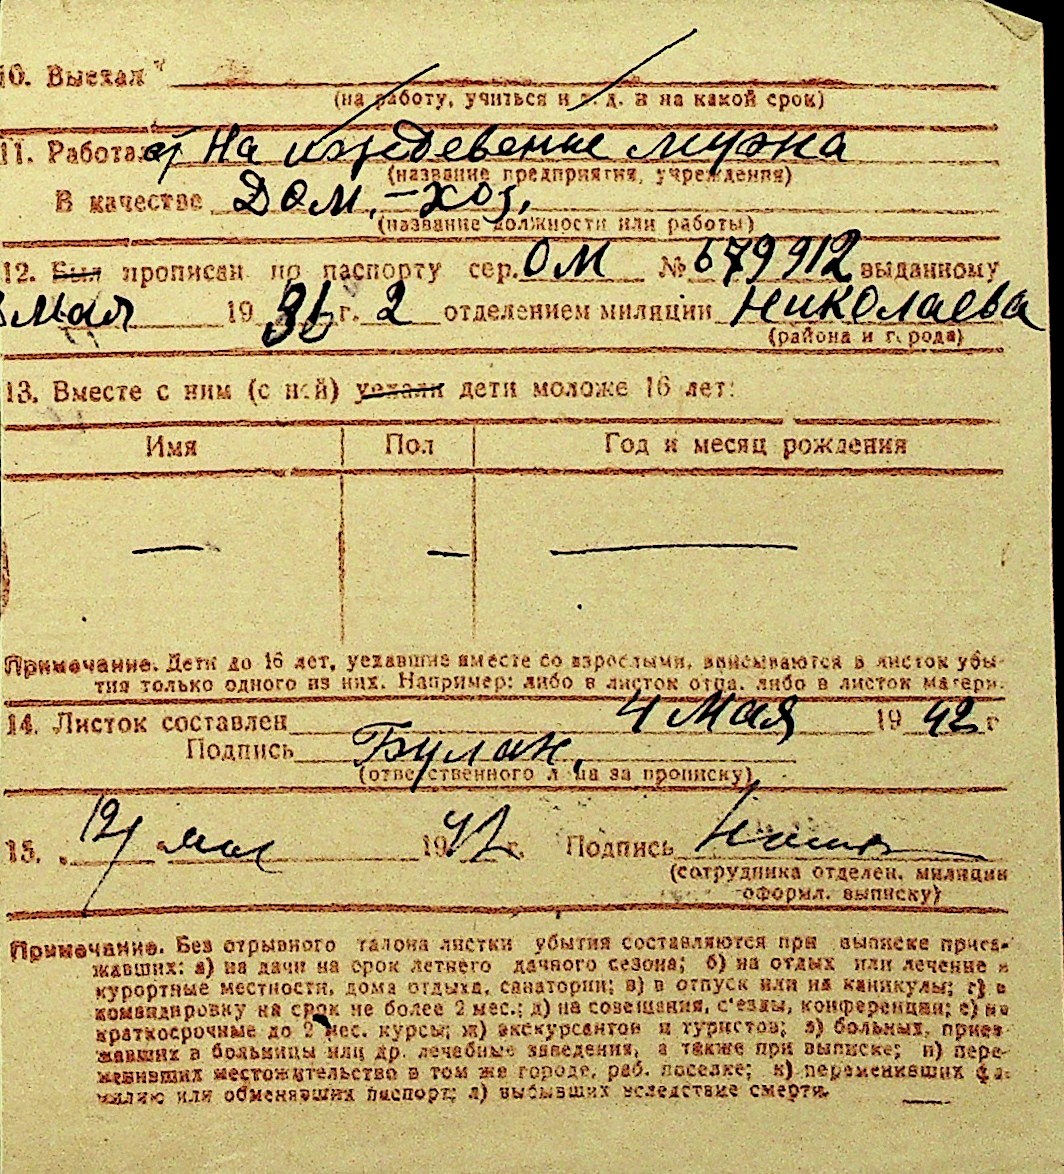 10. Выехал
(на работу, учиться и т. д. и на какой срок)
11. Работает На иждевение мужа
(название предприятия, учреждения)
В качестве Дом.-хоз.
(название должности или работы)
12. Был прописан по паспорту сер. ОМ № 679912 выданному
мая 1936 г. 2 отделением милиции Николаева
(района и города)
13. Вместе с ним (с ней) уехали дети моложе 16 лет:
Имя Пол Год и месяц рождения
— — —
Примечание. Дети до 16 лет, уехавшие вместе со взрослыми, вписываются в листок убы-
тия только одного из них. Например: либо в листок отца, либо в листок матери.
14. Листок составлен 4 мая 1942 г
Подпись Булак.
(ответственного лица за прописку)
15. 12/ мая 1942 г. Подпись
(сотрудника отделен. милиции
оформл. выписку)
Примечание. Без отрывного талона листки убытия составляются при выписке приез-
жавших: а) на дачи на срок летнего дачного сезона; б) на отдых или лечение в
курортные местности, дома отдыха, санатории; в) в отпуск или на каникулы; г) в
командировку на срок не более 2 мес.; д) на совещания, с'езды, конференции; е) на
краткосрочные до 2 мес. курсы; ж) экскурсантов и туристов; з) больных, приез-
жавших в больницы или др. лечебные заведения, а также при выписке; и) пере-
менивших местожительство в том же городе, раб. поселке; к) переменивших фа-
милию или обменявших паспорт; л) выбывших вследствие смерти.